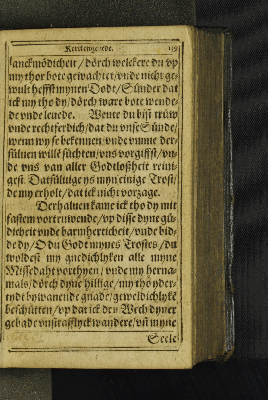 Kercken gebede. 119
lanckmödicheit / dörch welckere du vp
my thor bote gewachtet / vnde nicht ge-
wult heffst mynen Dodt / Sünder dat
ick my tho dy / dörch ware bote wende-
de vnde leuede. Wente du bist trüw
vnde rechtferdich / dat du vnse Sünde /
wenn wy se bekennen / vnde vmme der-
süluen wille süchten / vns vorgiffst / vn-
de vns van aller Godtloßheit reini-
gest Datsüluige ys myn einige Trost /
de my erholt / dat ick nicht vorzage.
Derhaluen kame ick tho dy mit
fastem vortruwende / vp disse dyne gü-
dicheit vnde barmherticheit / vnde bid-
de dy / O du Godt mynes Trostes / du
woldest my gnedichlyken alle myne
Missedaht vorthyen / vnde my herna-
mals / dörch dyne hillige / my tho yder-
tydt bywanende gnade / geweldichlyke
beschütten / vp dat ick den Wech dyner
gebade vnstrafflyck wandere / vñ myne
Seele